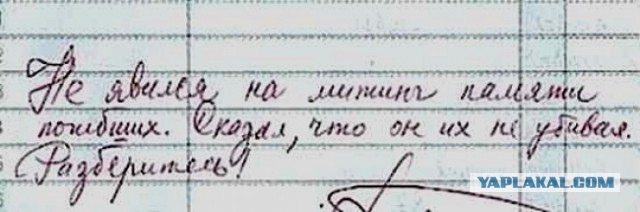 Не явился на митинг памяти
погибших. Сказал, что он их не убивал.
Разберитесь!
YAPLAKAL.COM